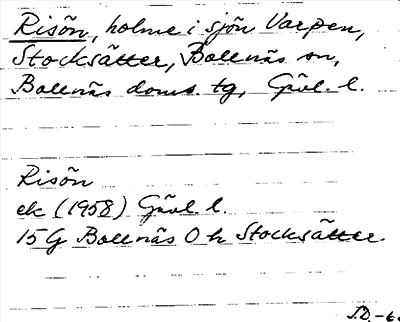 Risön, holme i sjön Varpen,
Stocksätter, Bollnäs sn,
Bollnäs doms. tg, Gävl. l.
Risön
ek (1958) Gävl. l.
15G Bollnäs O h Stocksätter.
S.D.-6.